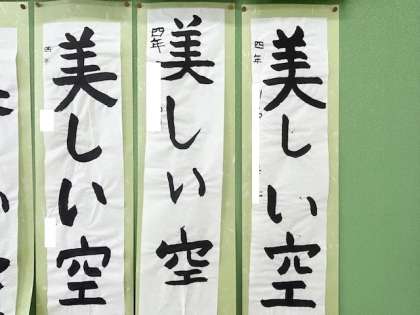 四年
美しい空
四年
美しい空
美しい空